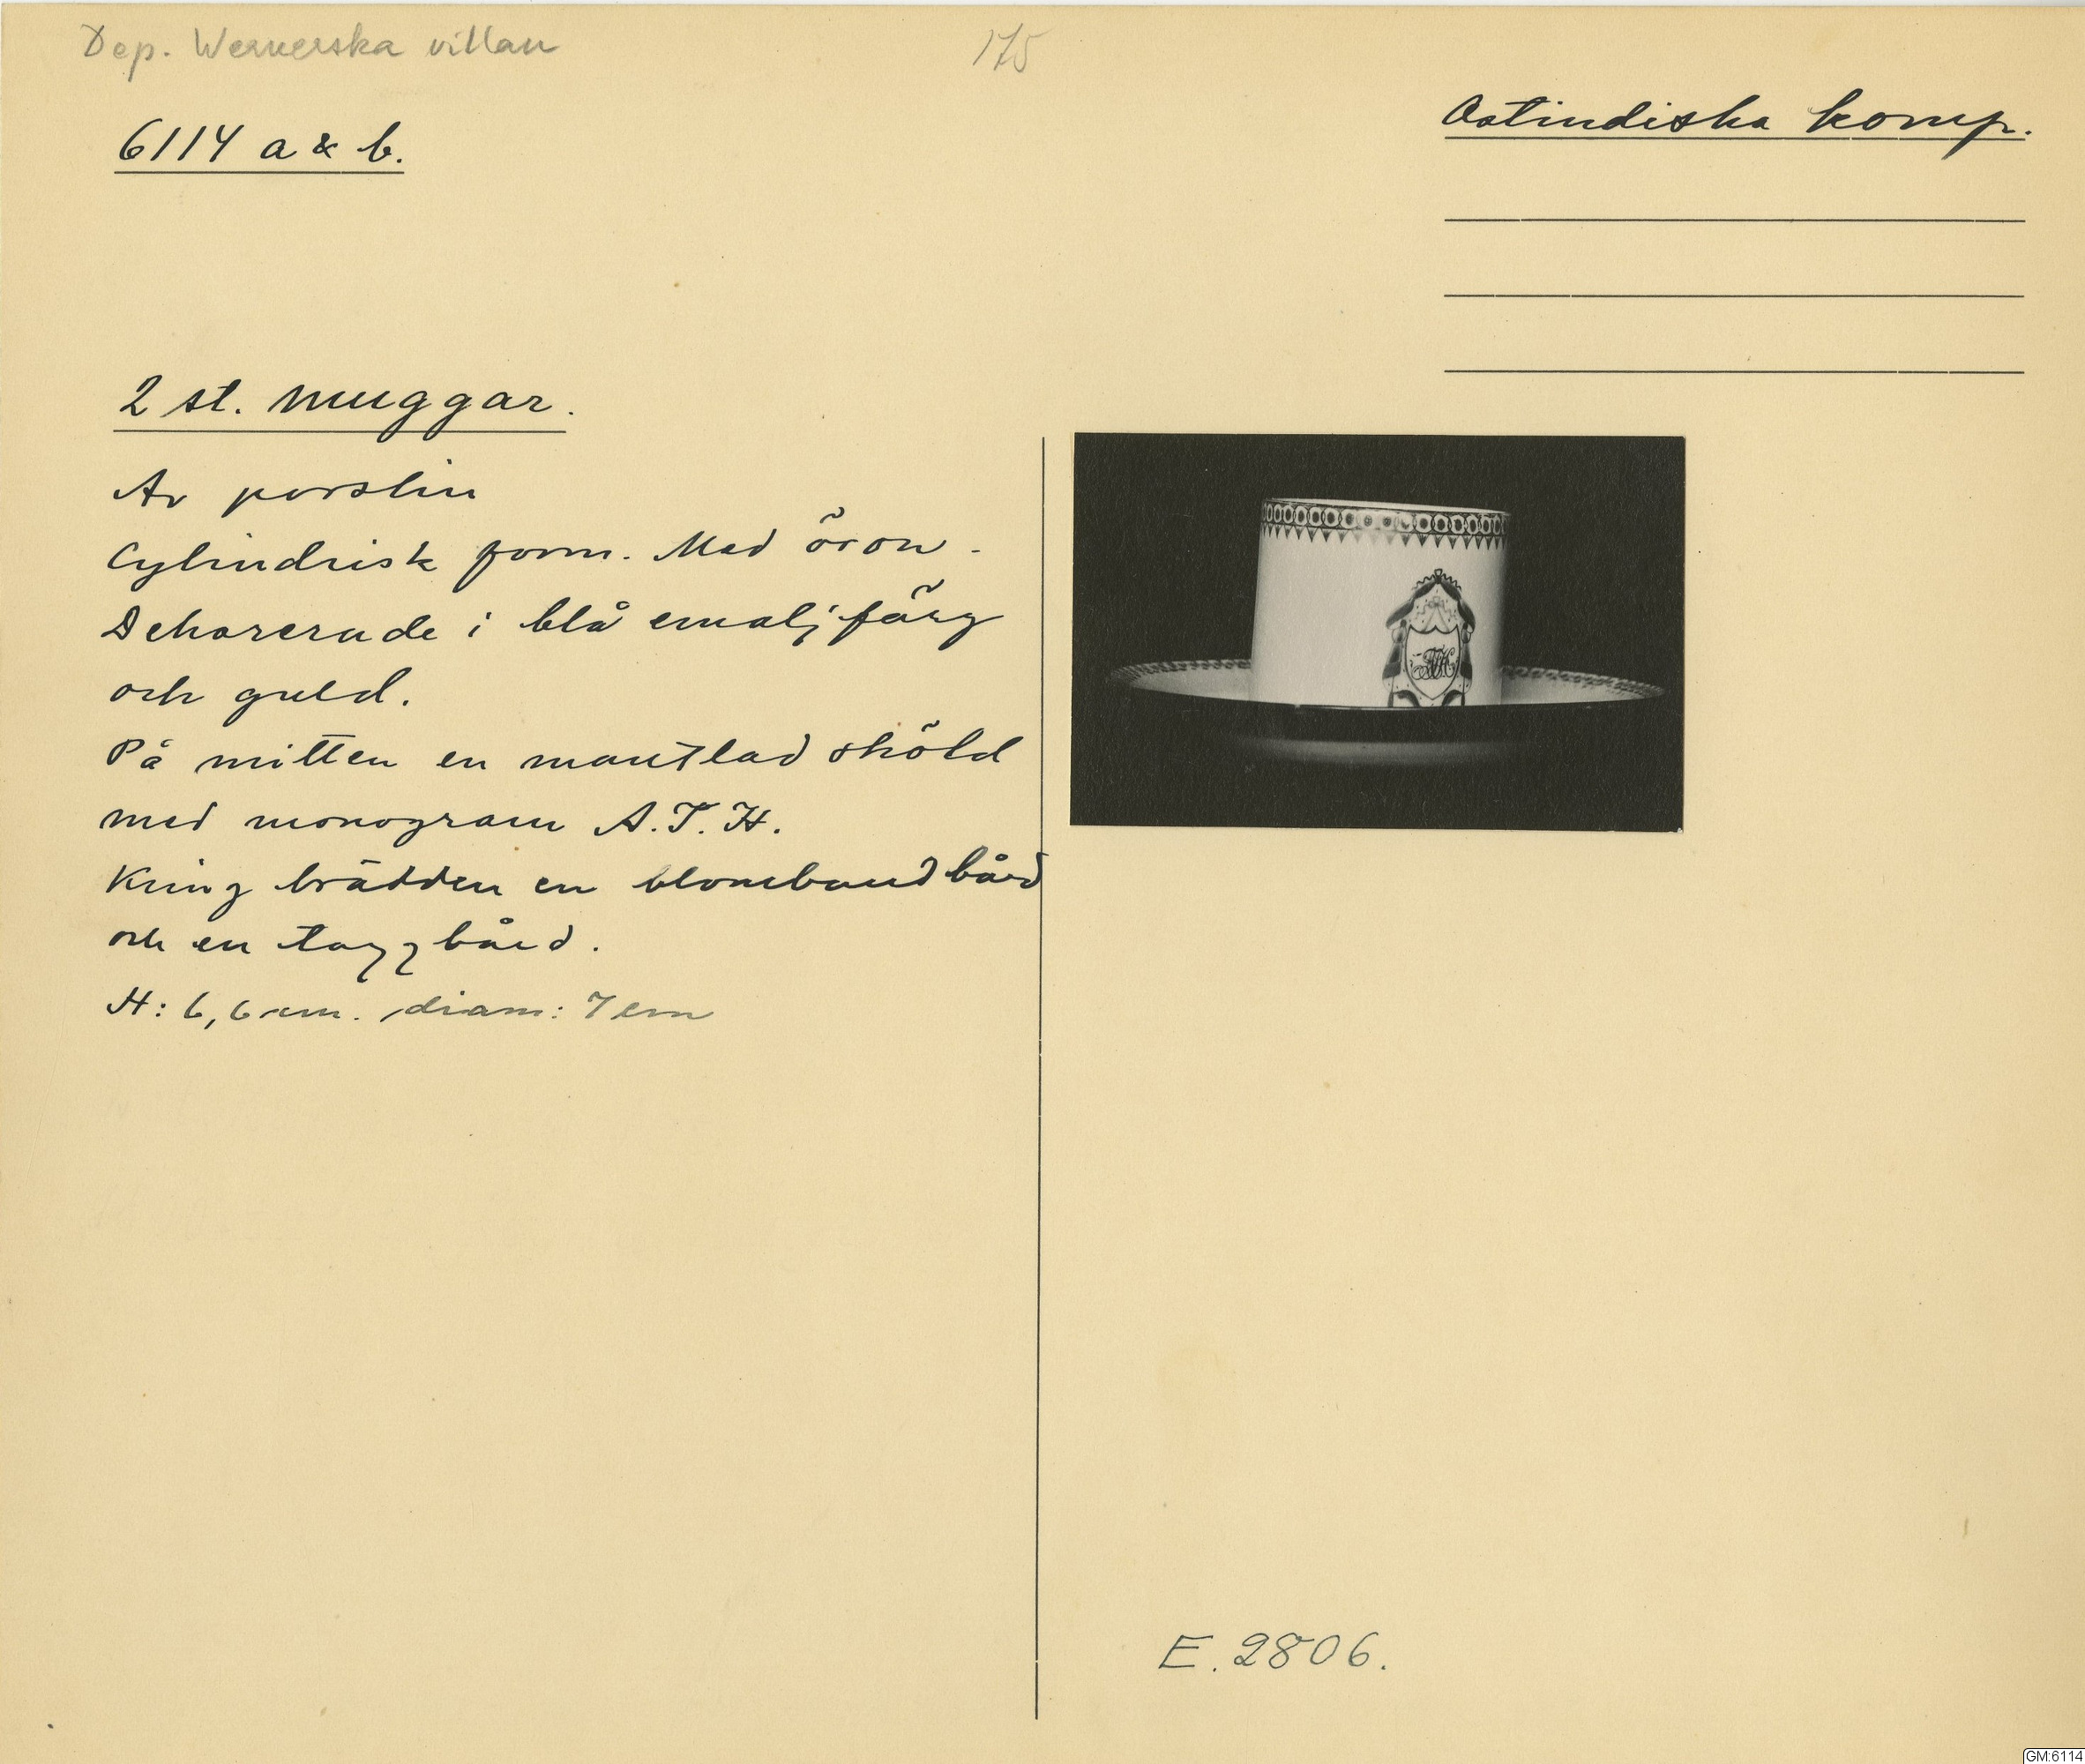 Dep. Wernerska villan
175
6114 a & b.
Ostindiska komp.
2 st. muggar.
Av porslin
Cylindrisk form. Med öron.
Dekorerade i blå emaljfärg
och guld.
På mitten en mantlad sköld
med monogram A.T.H.
Kring brädden en blombandbård
och en taggbård.
H: 6,6 cm. diam: 7 cm
E. 2806.
GM:6114